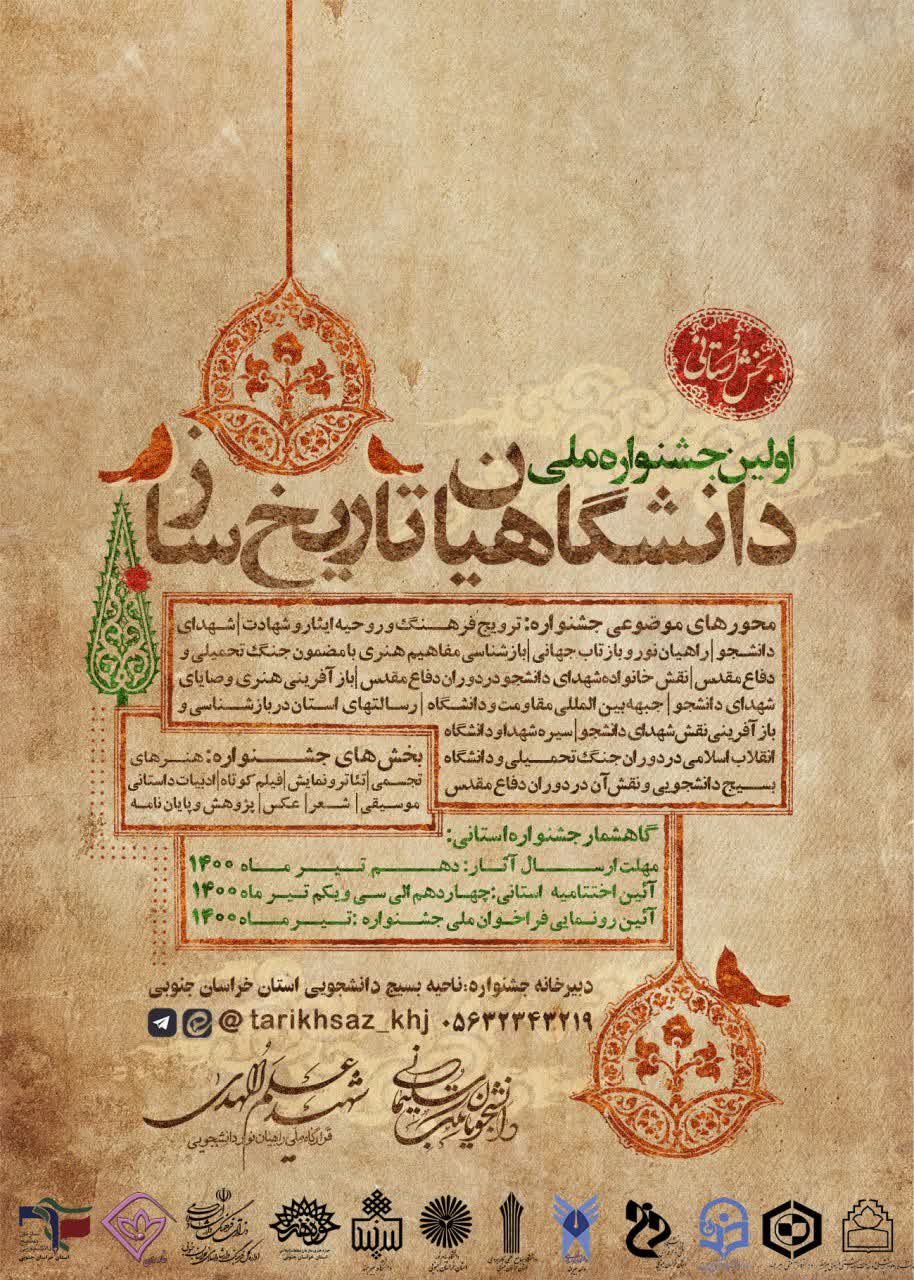 بخش استانی
اولین جشنواره ملی
دانشگاهیان تاریخ ساز
محورهای موضوعی جشنواره: ترویج فرهنگ و روحیه ایثار و شهادت | شهدای
دانشجو | راهیان نور و بازتاب جهانی | بازشناسی مفاهیم هنری با مضمون جنگ تحمیلی و
دفاع مقدس | نقش خانواده شهدای دانشجو در دوران دفاع مقدس | باز آفرینی هنری وصایای
شهدای دانشجو | جبهه بین المللی مقاومت و دانشگاه | رسالتهای استان در بازشناسی و
باز آفرینی نقش شهدای دانشجو | سیره شهدا و دانشگاه
انقلاب اسلامی در دوران جنگ تحمیلی و دانشگاه
بسیج دانشجویی و نقش آن در دوران دفاع مقدس
بخش های جشنواره: هنرهای
تجسمی | تئاتر و نمایش | فیلم کوتاه | ادبیات داستانی
موسیقی | شعر | عکس | پژوهش و پایان نامه
گاهشمار جشنواره استانی:
مهلت ارسال آثار: دهم تیر ماه ۱۴۰۰
آئین اختتامیه استانی: چهاردهم الی سی و یکم تیر ماه ۱۴۰۰
آئین رونمایی فراخوان ملی جشنواره: تیر ماه ۱۴۰۰
دبیرخانه جشنواره: ناحیه بسیج دانشجویی استان خراسان جنوبی
@tarikhsaz_khj ۰۵۶۳۲۳۴۳۲۱۹
دانشجویان مکتب سلیمانی
شهید علم الهدی
قرارگاه ملی راهیان نور دانشجویی